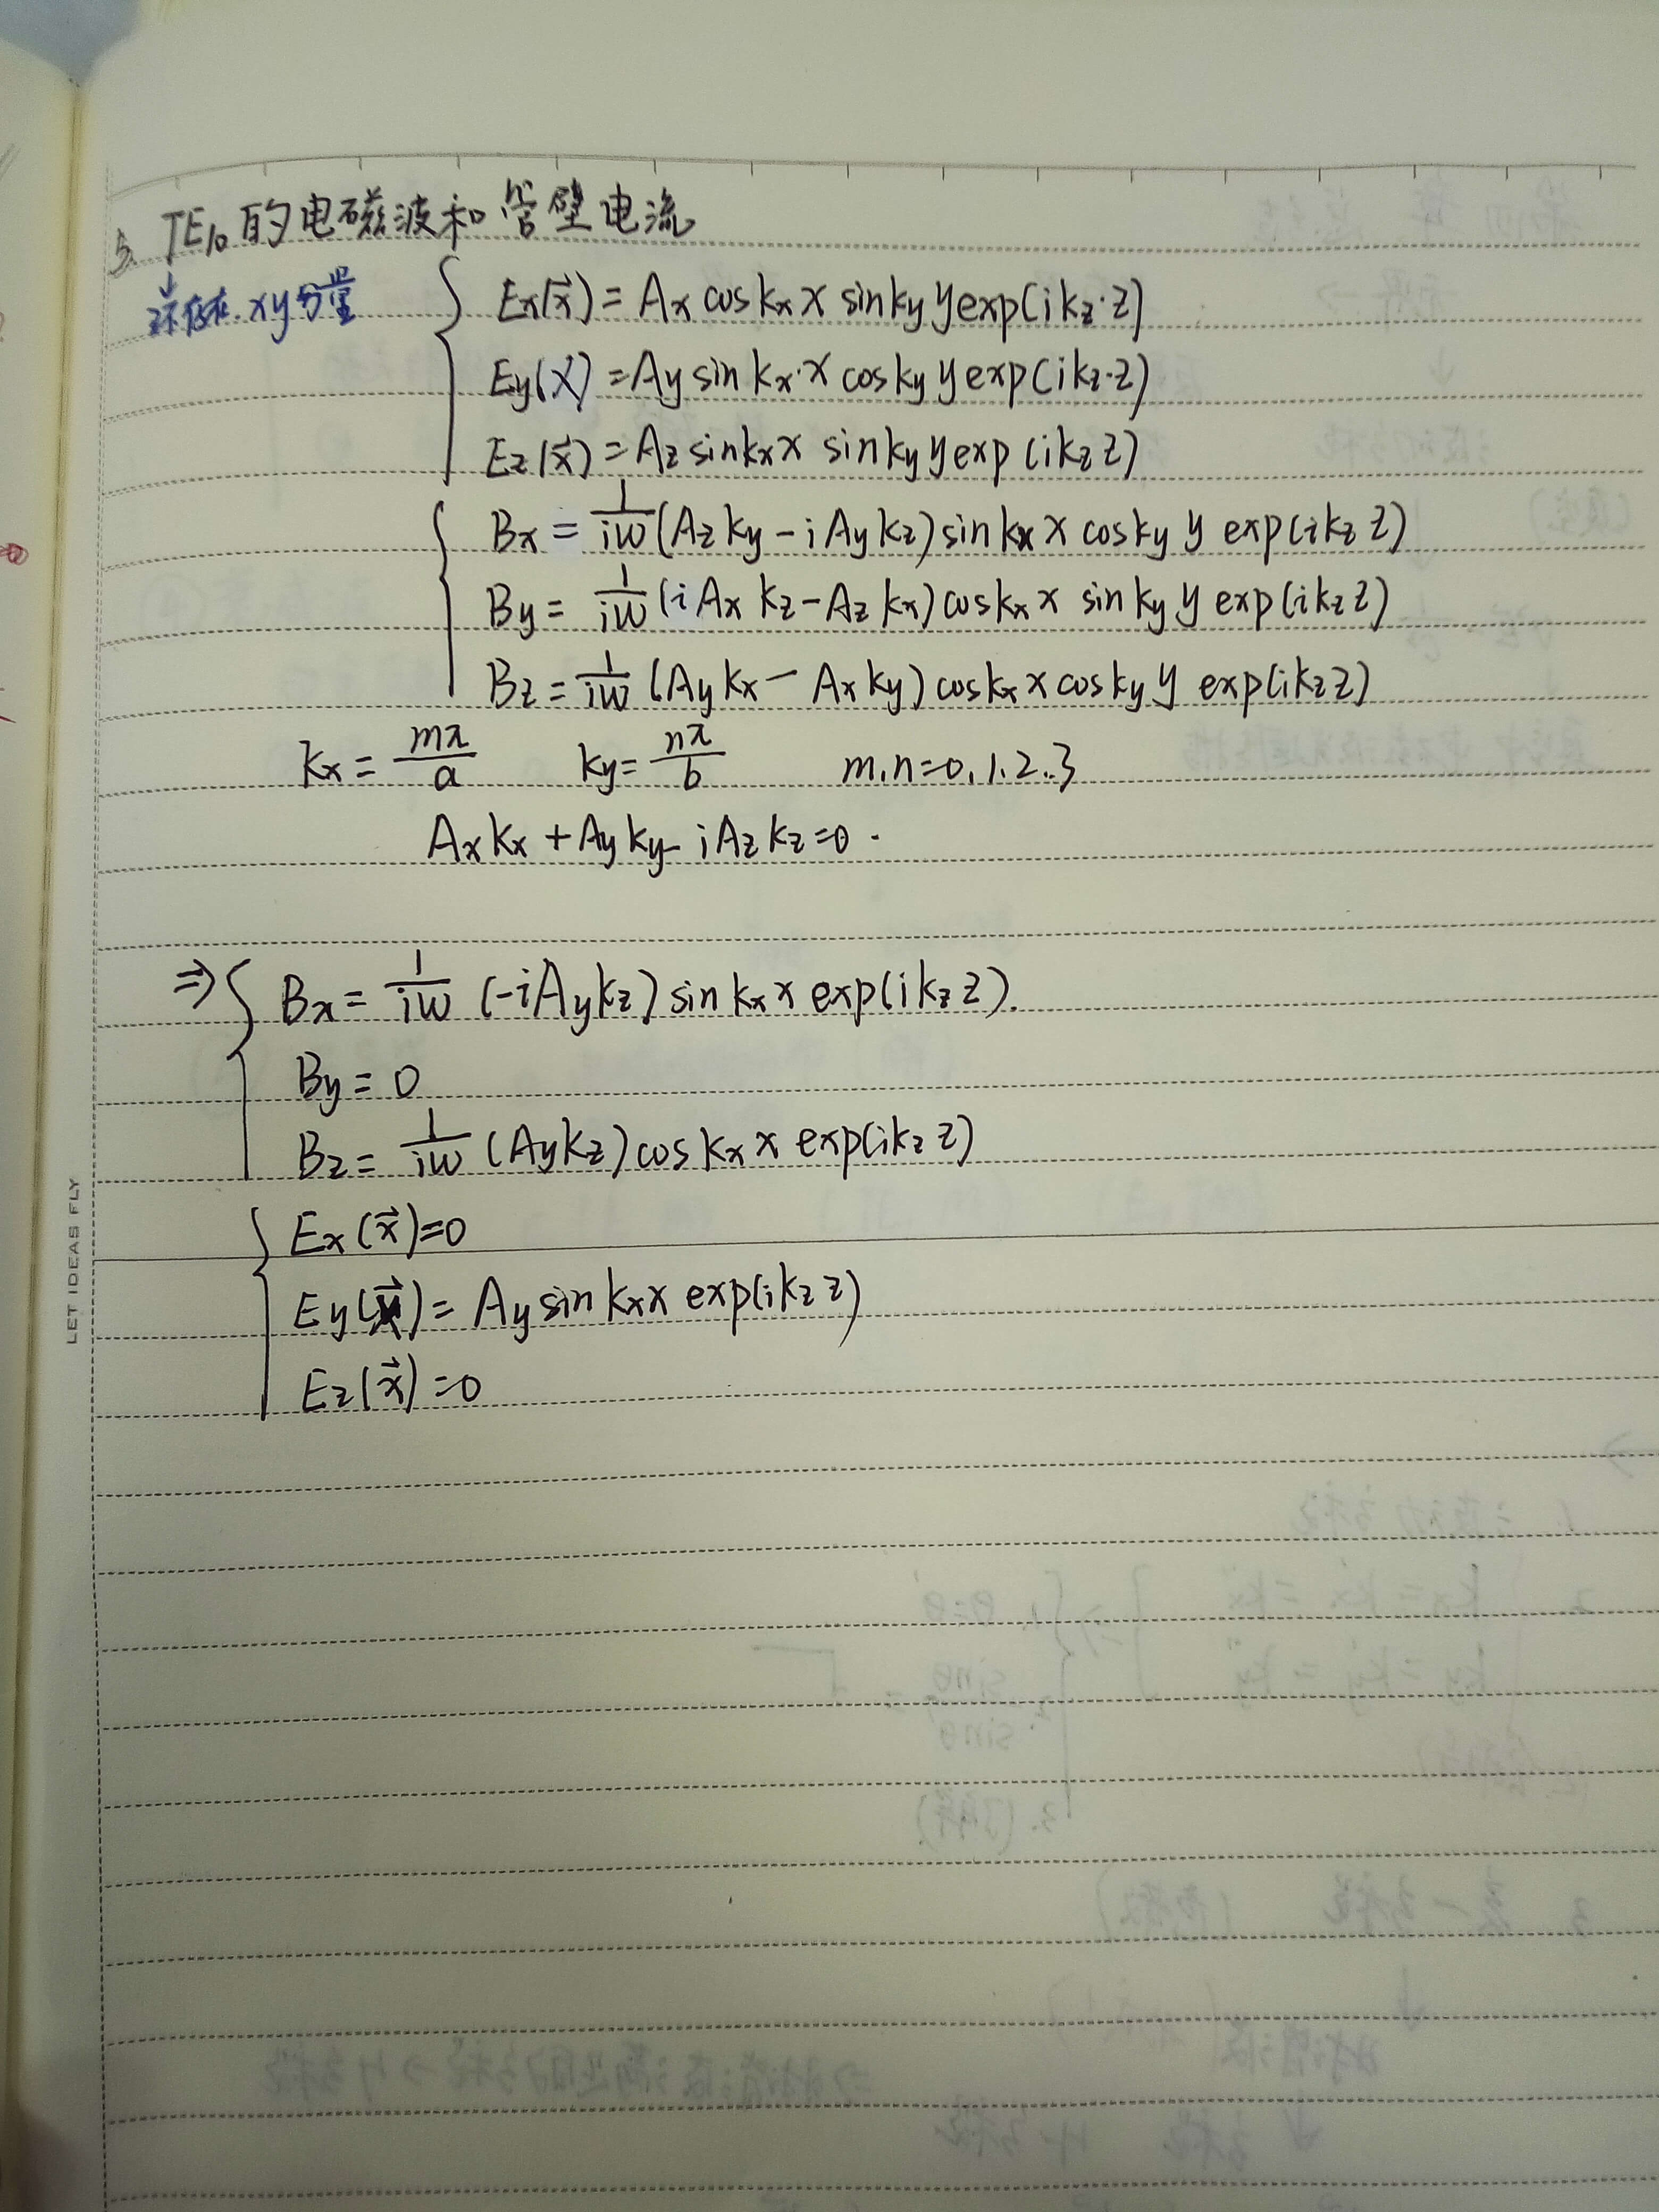 5. TE₁₀的电磁波和管壁电流
存在xy分量
Ex(x⃗) = Ax cos kx x sin ky y exp(ikz·z)
Ey(x⃗) = Ay sin kx·x cos ky y exp(ikz·z)
Ez(x⃗) = Az sin kx x sin ky y exp(ikz z)
Bx = 1/iω (Az ky - iAy kz) sin kx x cos ky y exp(ikz z)
By = 1/iω (iAx kz - Az kx) cos kx x sin ky y exp(ikz z)
Bz = 1/iω (Ay kx - Ax ky) cos kx x cos ky y exp(ikz z)
kx = mπ/a ky = nπ/b m.n=0.1.2..3
Ax kx + Ay ky - iAz kz = 0.
⇒ Bx = 1/iω (-iAy kz) sin kx x exp(ikz z).
By = 0
Bz = 1/iω (Ay kz) cos kx x exp(ikz z)
Ex(x⃗)=0
Ey(x⃗) = Ay sin kx x exp(ikz z)
Ez(x⃗)=0
LET IDEAS FLY